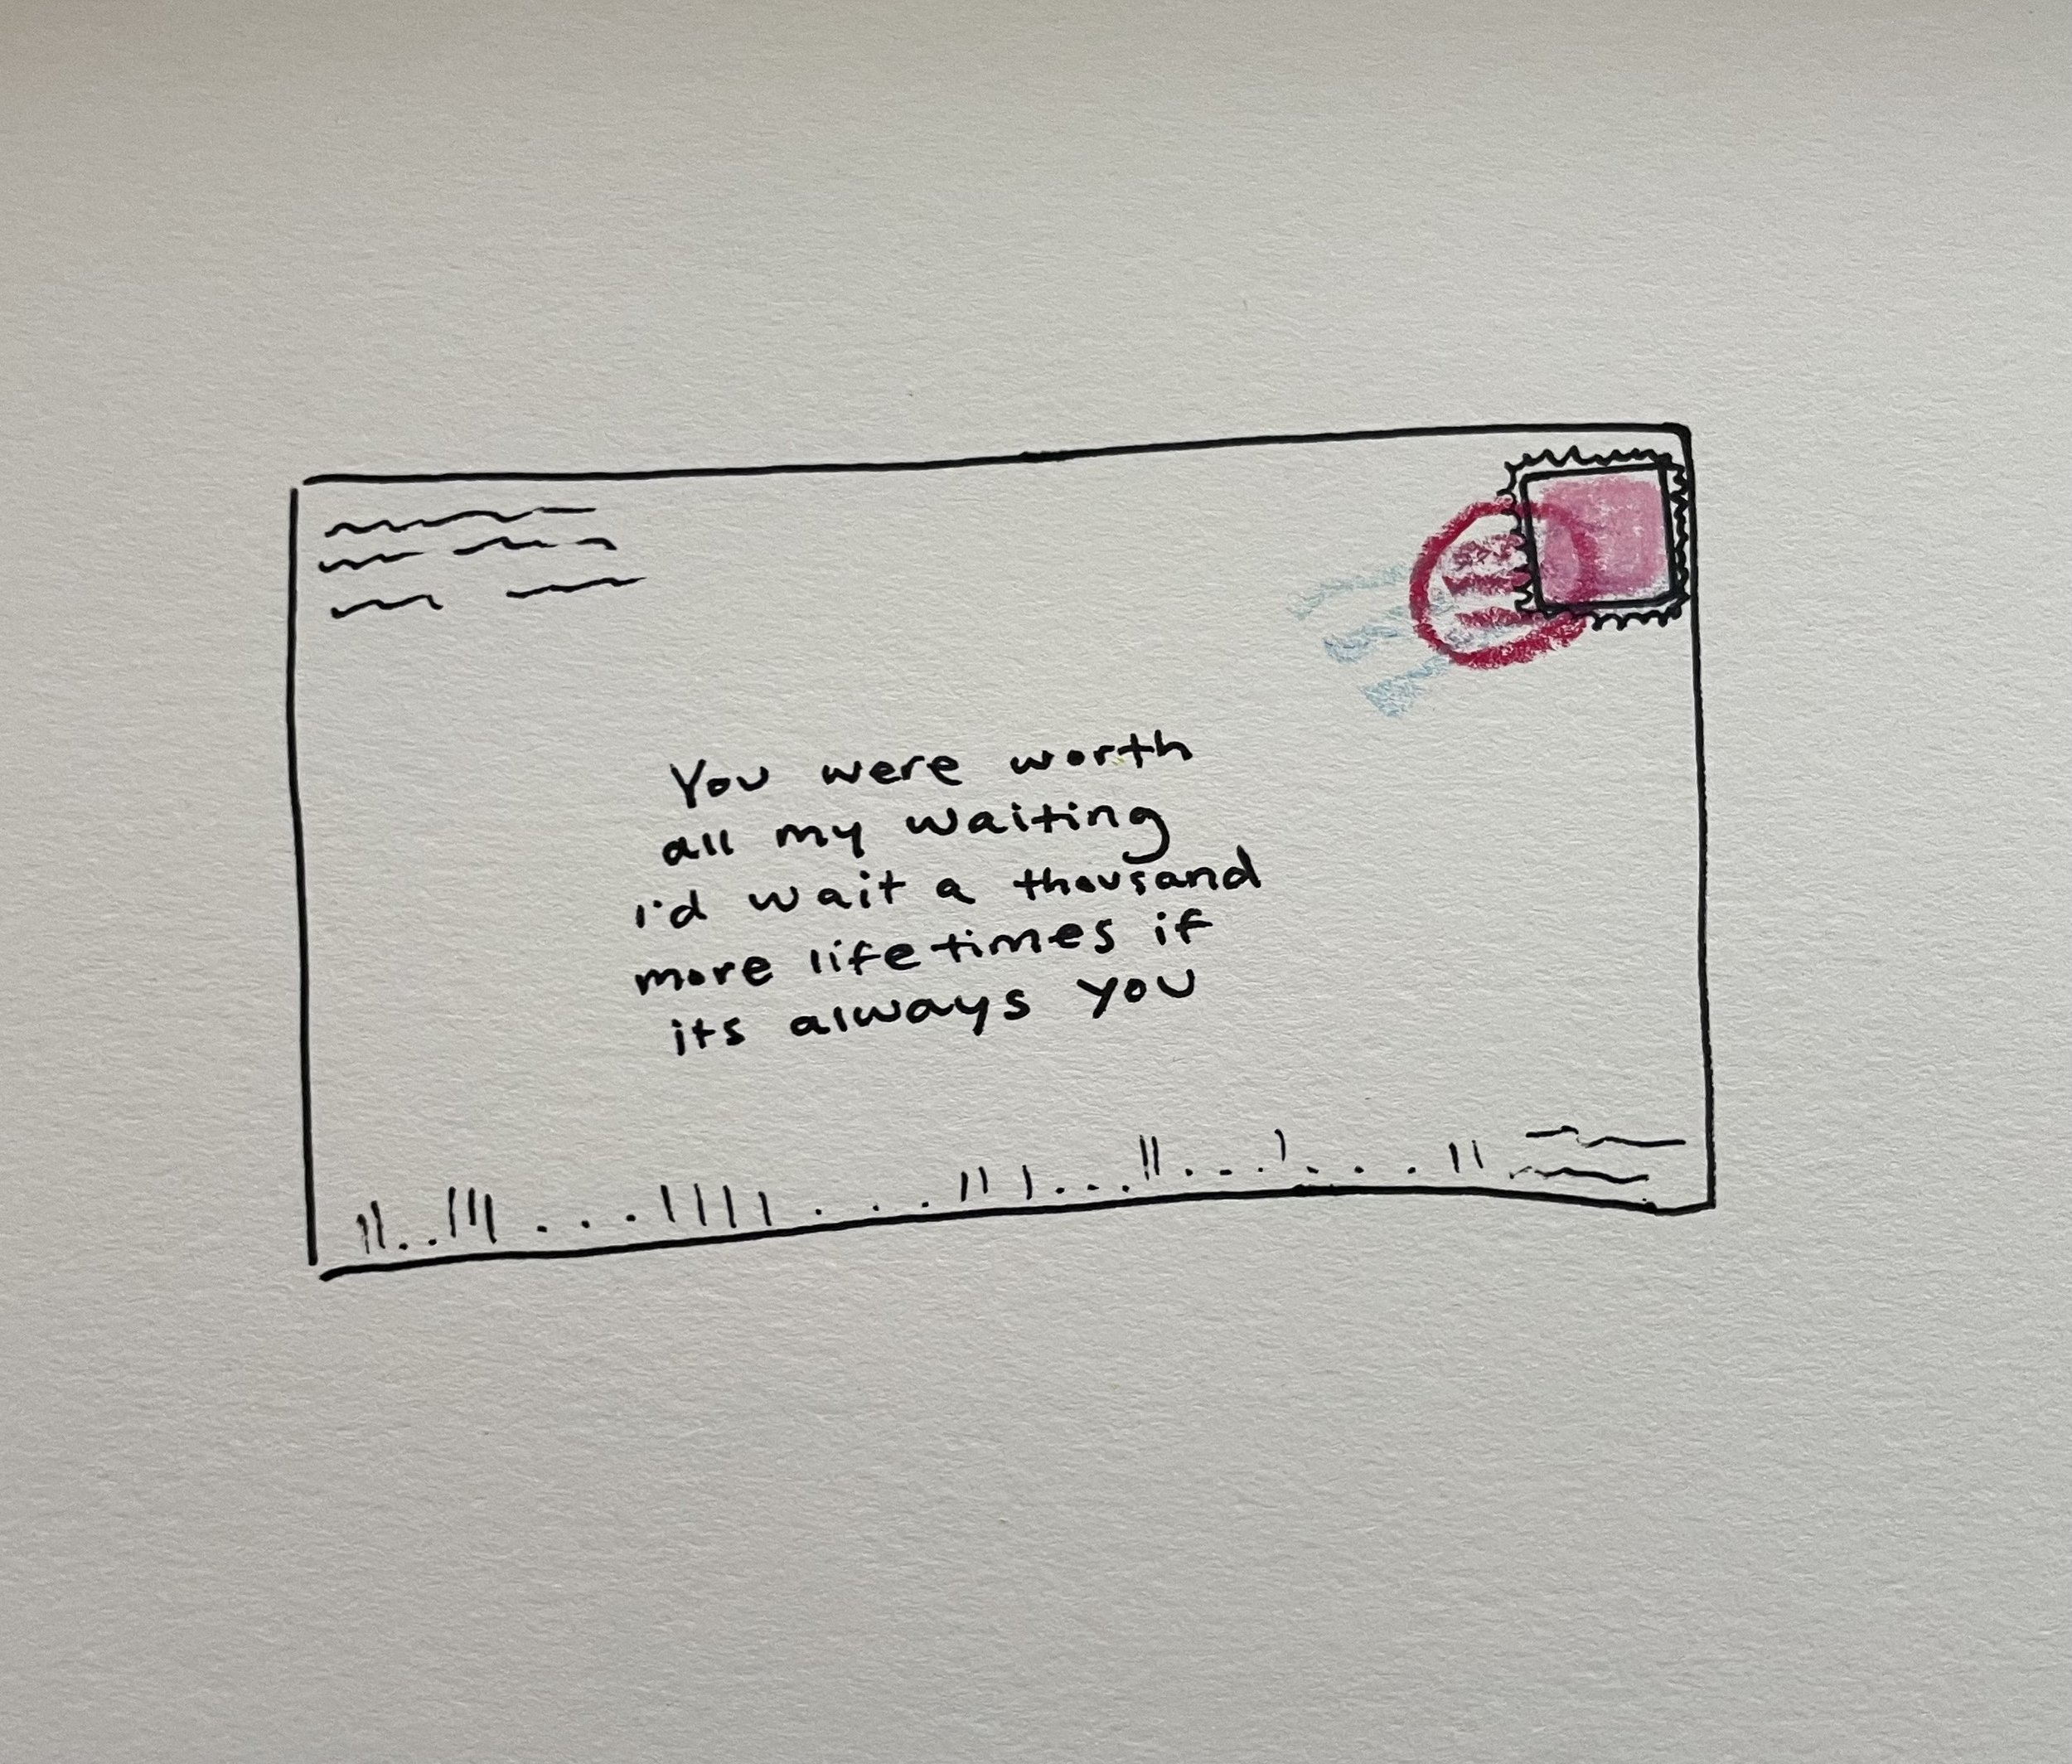 You were worth
all my waiting
i'd wait a thousand
more lifetimes if
its always you